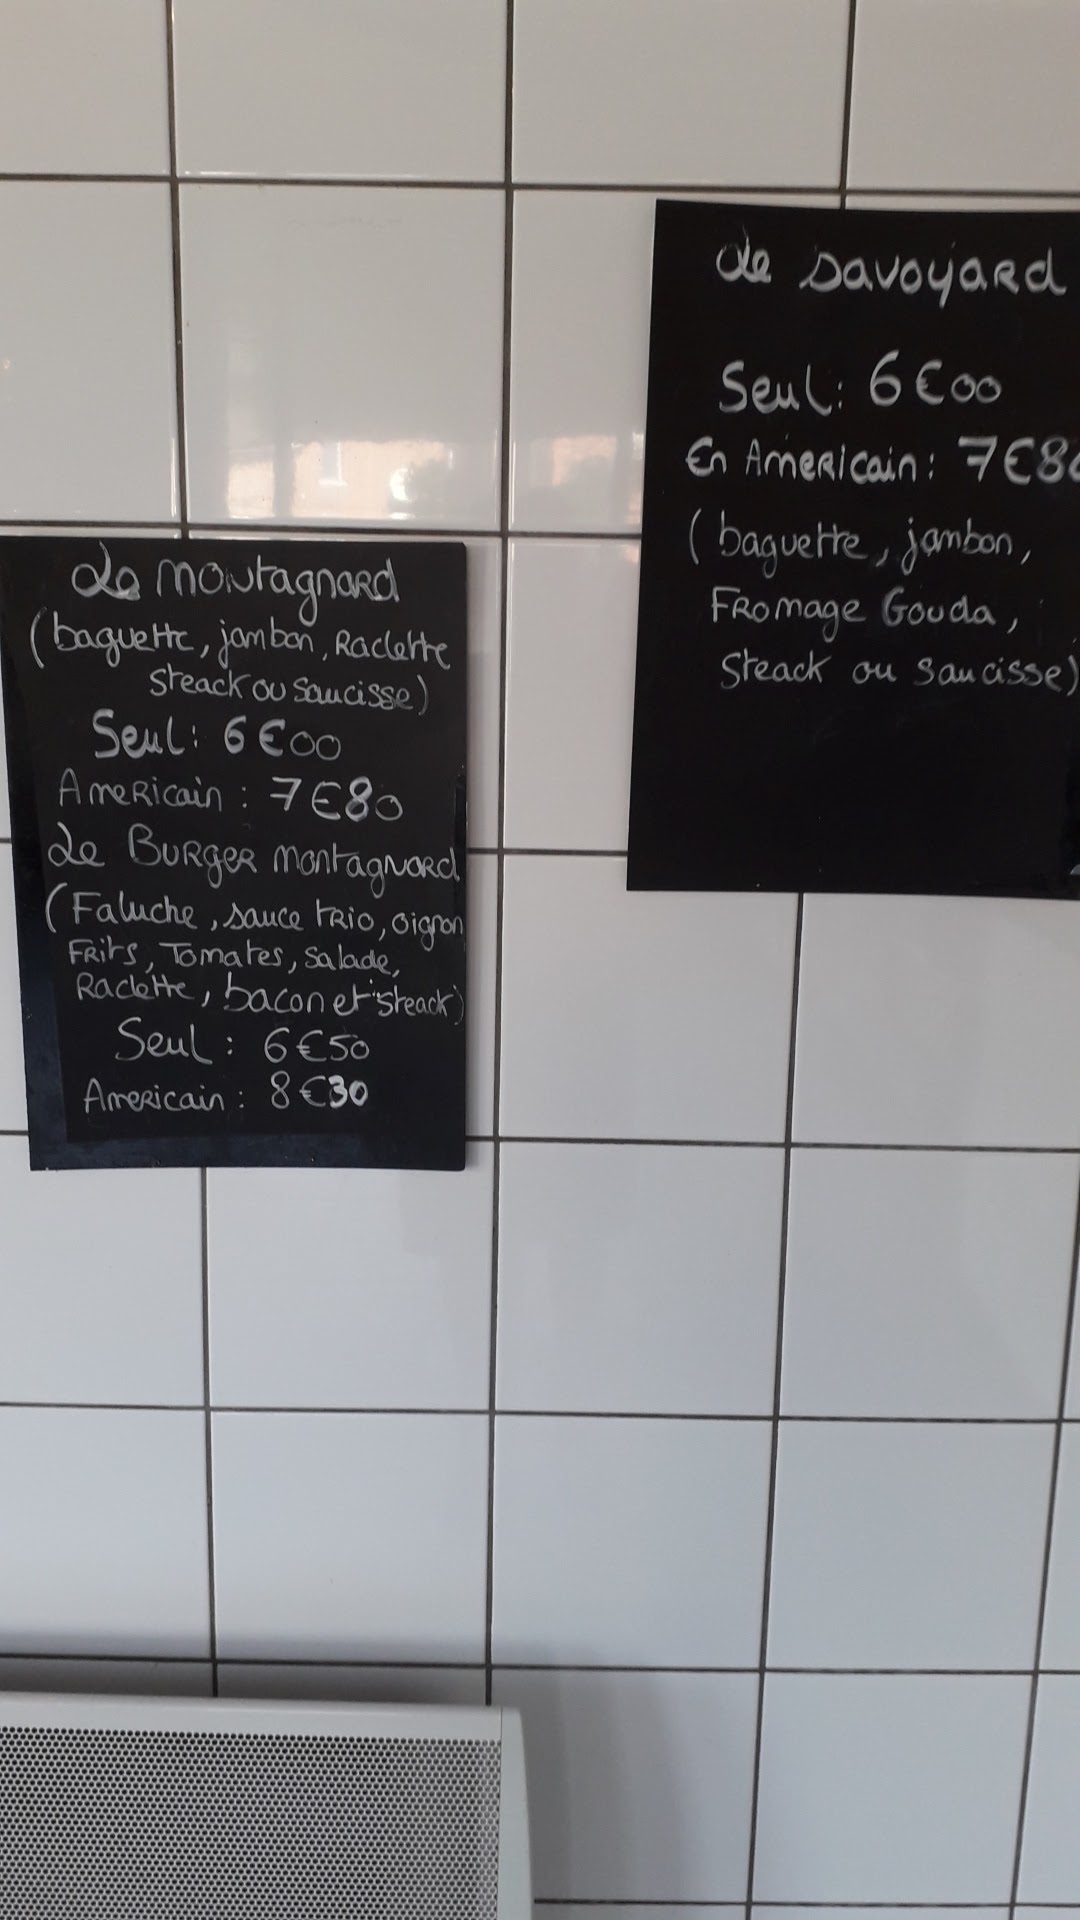 Le montagnard
(baguette, jambon, Raclette
steack ou saucisse)
Seul: 6€00
Americain: 7€80
Le Burger montagnard
(Faluche, sauce trio, oignon
Frits, Tomates, salade,
Raclette, bacon et steack)
Seul: 6€50
Americain: 8€30
Le savoyard
Seul: 6€00
En Americain: 7€80
(baguette, jambon,
Fromage Gouda,
Steack ou saucisse)